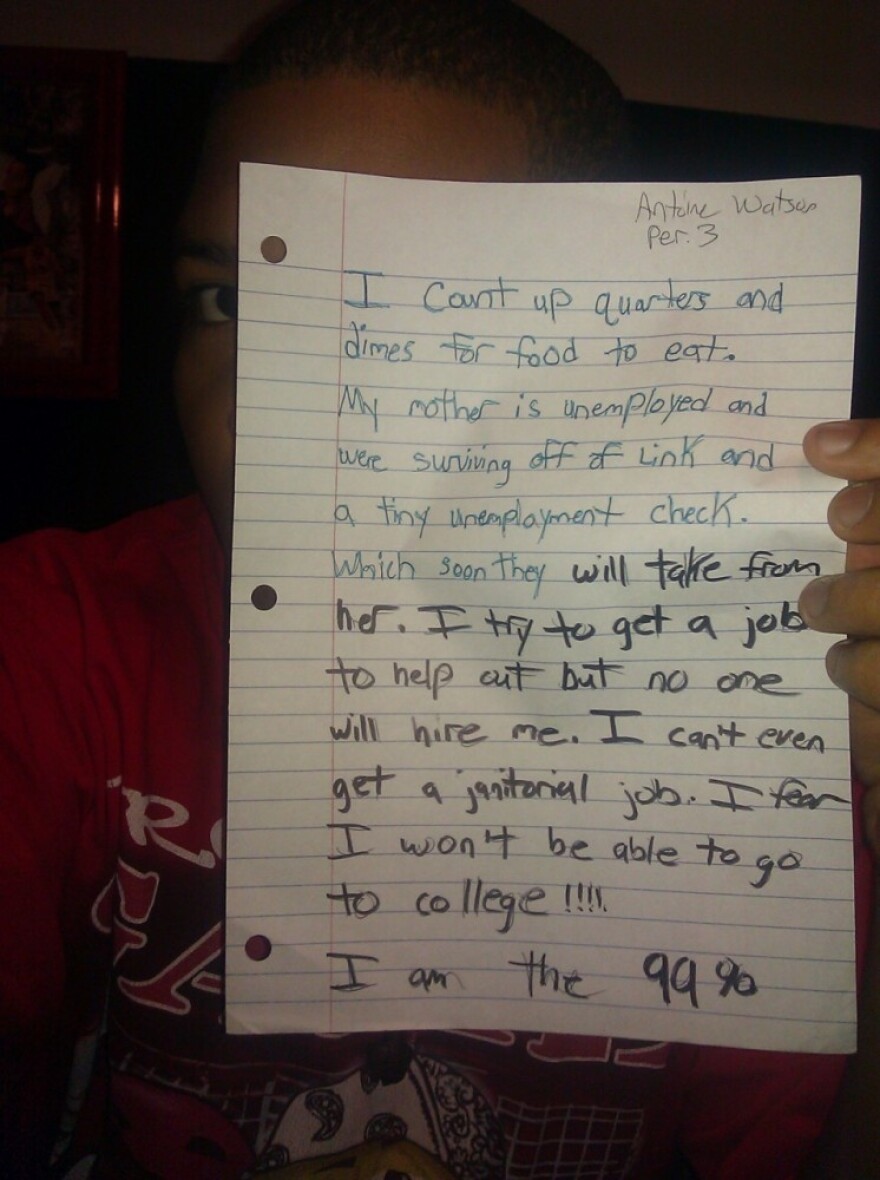 Antoine Watson
Per. 3
I Count up quarters and
dimes for food to eat.
My mother is unemployed and
were surviving off of Link and
a tiny unemployment check.
Which soon they will take from
her. I try to get a job
to help out but no one
will hire me. I can't even
get a janitorial job. I fear
I won't be able to go
to college !!!!
I am the 99%